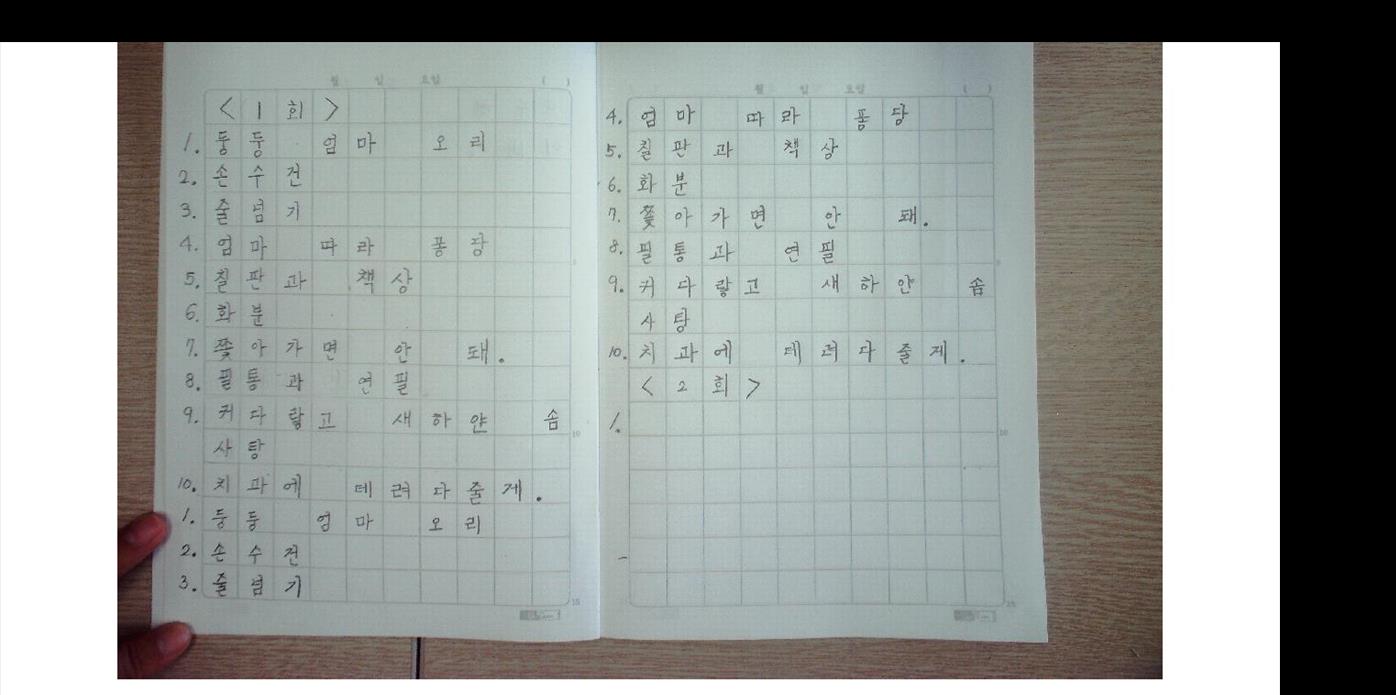 월 일 요일 ( )
< 1 회 >
1. 둥둥 엄마 오리
2. 손수건
3. 줄넘기
4. 엄마 따라 퐁당
5. 칠판과 책상
6. 화분
7. 쫓아가면 안 돼.
8. 필통과 연필
9. 커다랗고 새하얀 솜
사탕
10. 치과에 데려다줄게.
1. 둥둥 엄마 오리
2. 손수건
3. 줄넘기
월 일 요일 ( )
4. 엄마 따라 퐁당
5. 칠판과 책상
6. 화분
7. 쫓아가면 안 돼.
8. 필통과 연필
9. 커다랗고 새하얀 솜
사탕
10. 치과에 데려다줄게.
< 2 회 >
1.